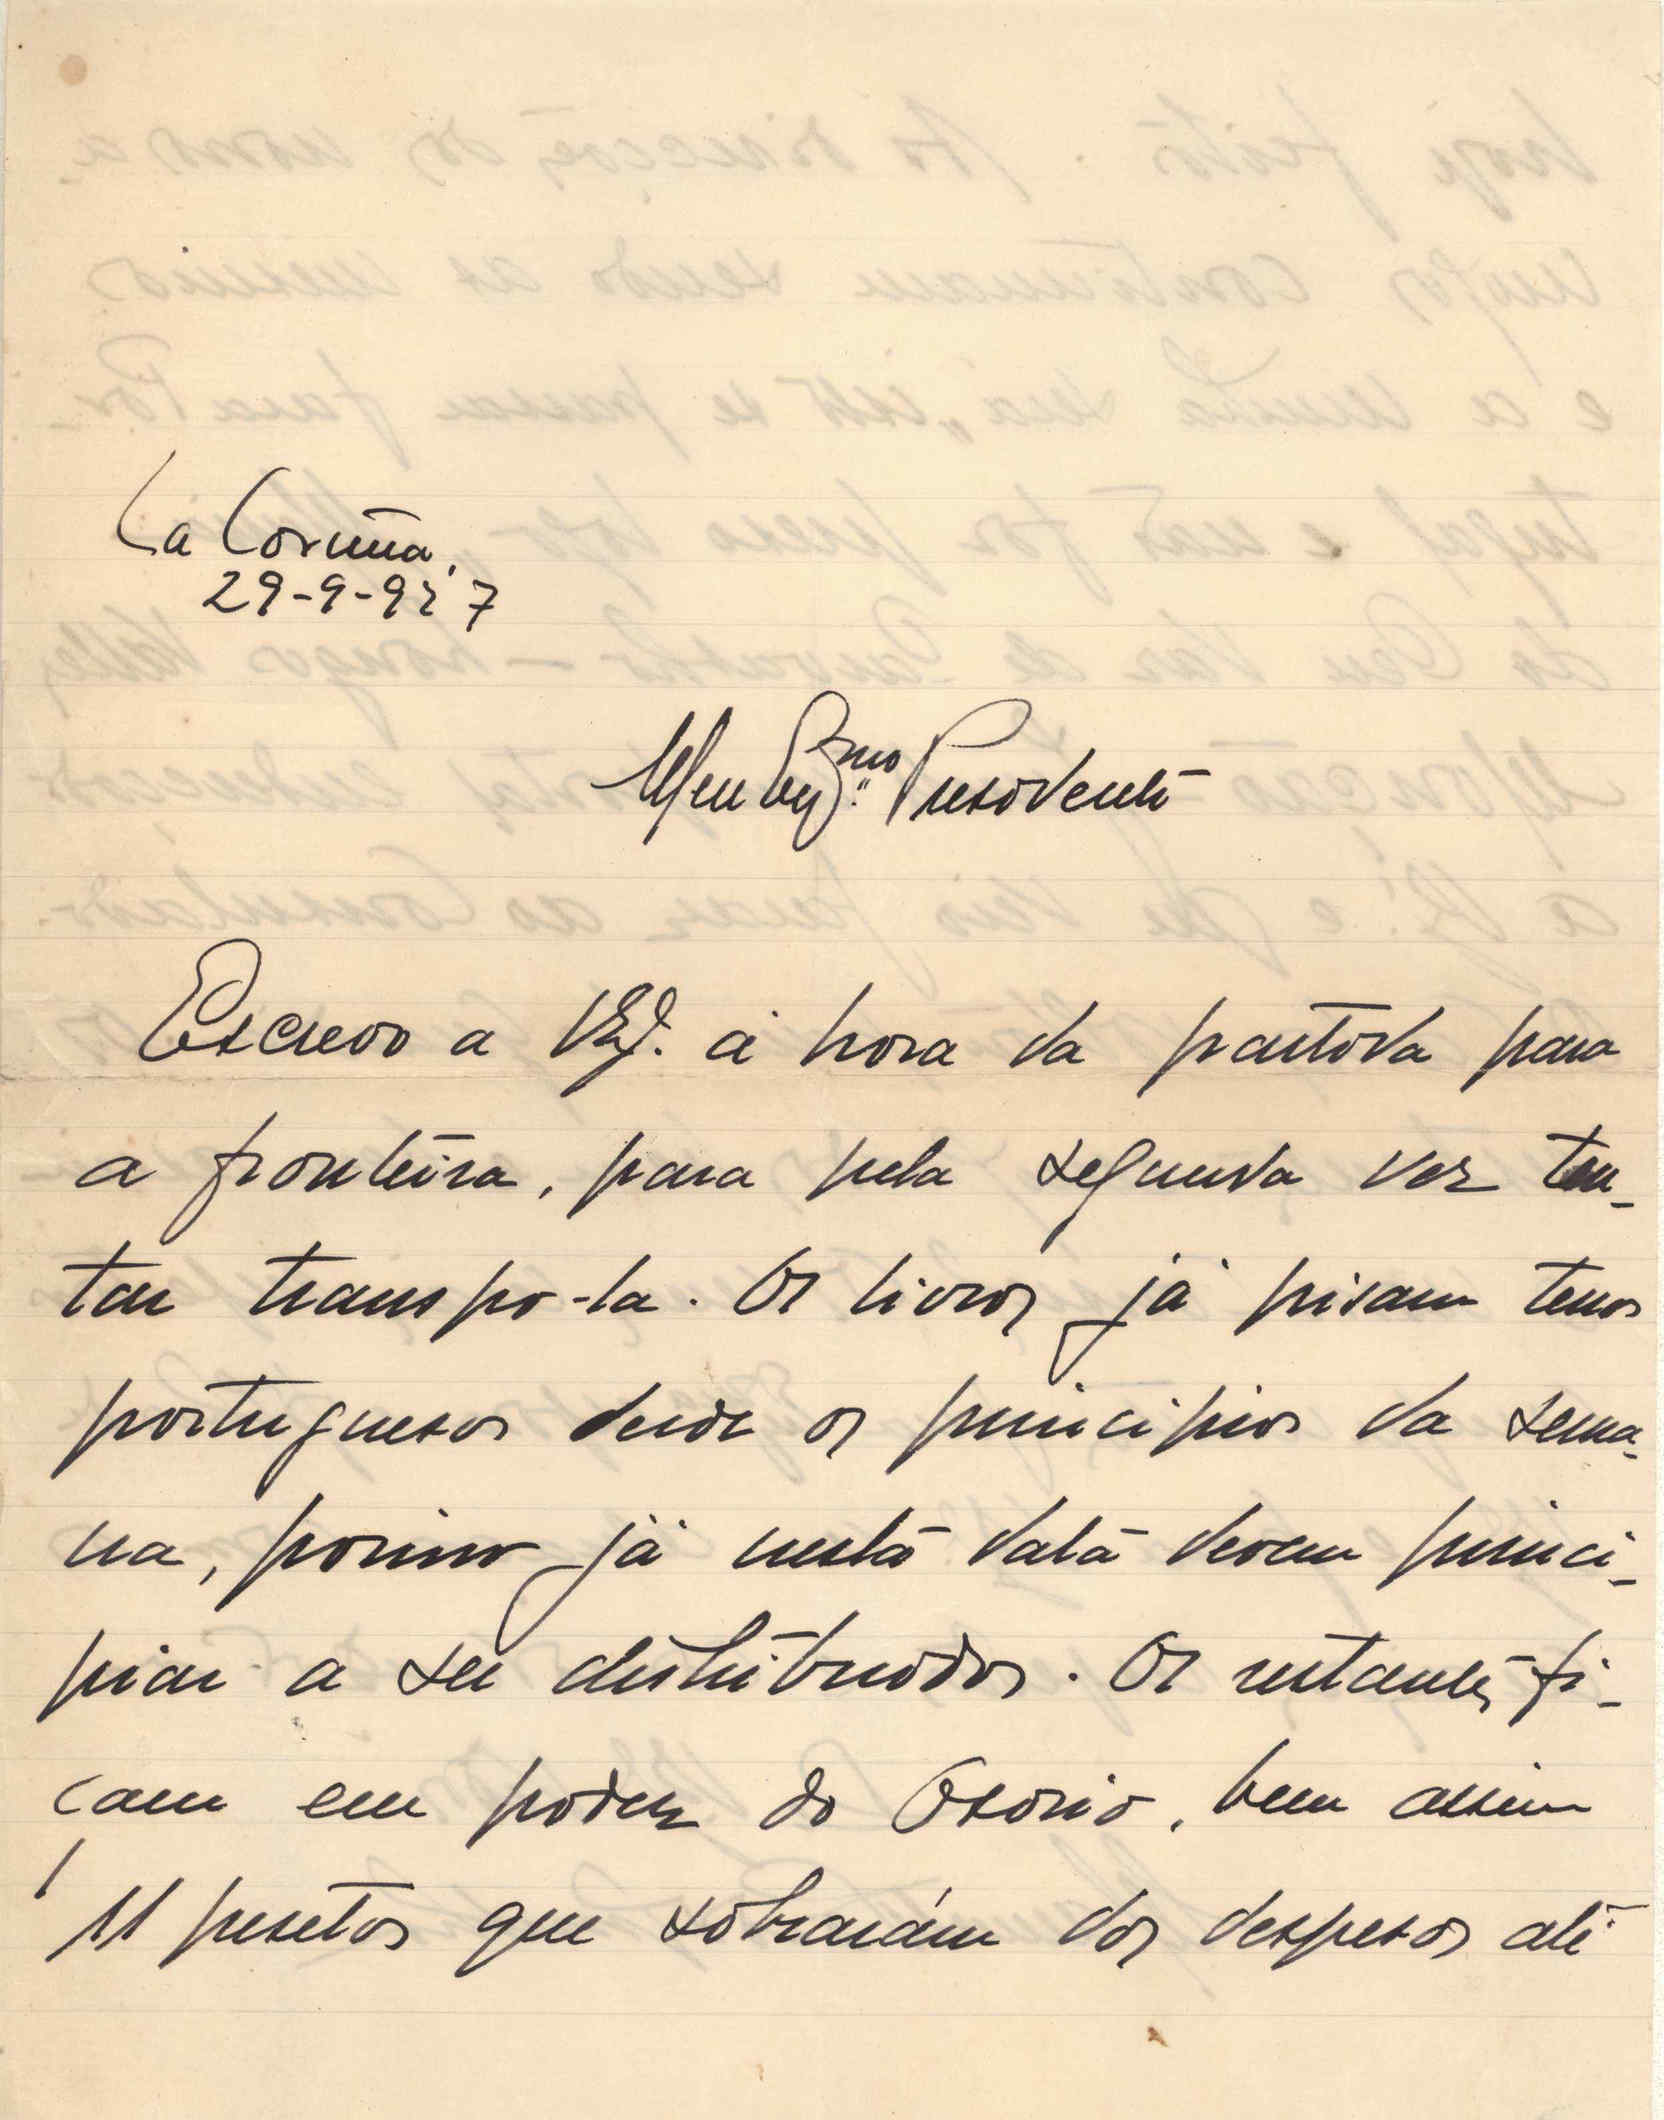 La Coruña,
29-9-927
Meu Ex.mo Presidente
Escrevo a V. Ex. á hora da partida para
a fronteira, para pela segunda vez ten-
tar transpo-la. Os livros já pisam terras
portuguesas desde os principios da sema-
na, porisso já nesta data devem princi-
piar a ser distribuidos. Os restantes fi-
cam em poder do Osorio, bem assim
11 pesetas que sobrarám das despesas até